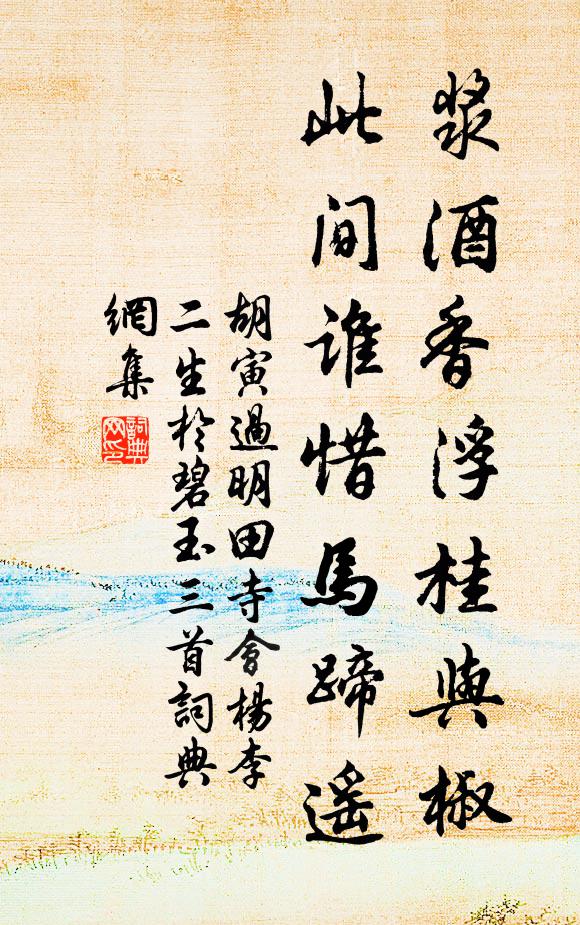 漿酒香浮桂與椒
此间誰惜馬蹄遥
胡寅過明田寺會楊李
二生於碧玉三首詞典
網集
詞典
网印